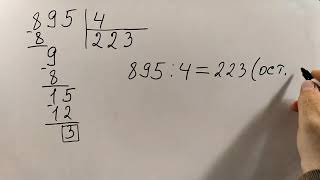 895 | 4
-8 | 223
9
-8
15
-12
3
895:4=223(ост.